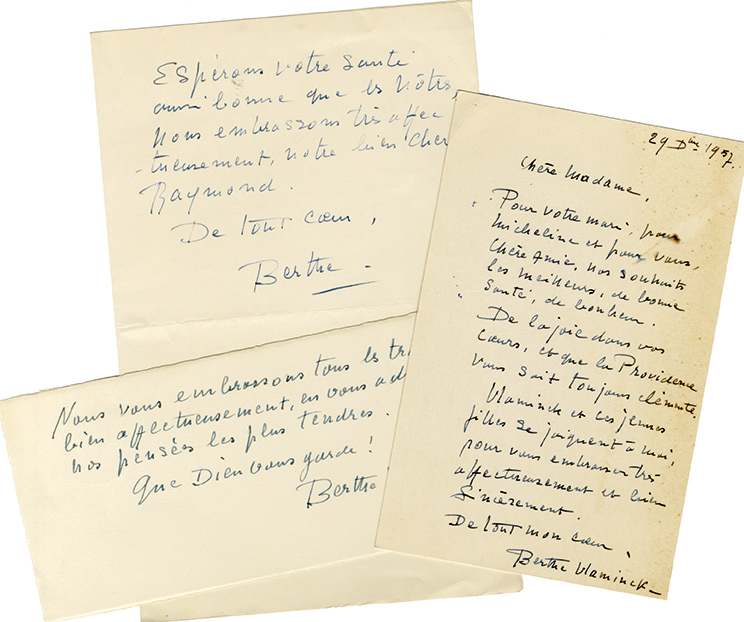 Espérons votre santé
aussi bonne que les nôtres
nous embrassons très affec
-tueusement, notre bien cher
Raymond.
De tout cœur,
Berthe -
Nous vous embrassons tous les
bien affectueusement, en vous
nos pensées les plus tendres.
Que Dieu vous garde !
Berthe
29 Dbre 1957.
Chère Madame,
Pour votre mari, pour
Micheline et pour vous,
chère Amie, nos souhaits
les meilleurs, de bonne
santé, de bonheur.
De la joie dans vos
cœurs, et que la Providence
vous soit toujours clémente.
Vlaminck et les jeunes
filles se joignent à moi,
pour vous embrasser très
affectueusement et bien
sincèrement.
De tout mon cœur,
Berthe Vlaminck -